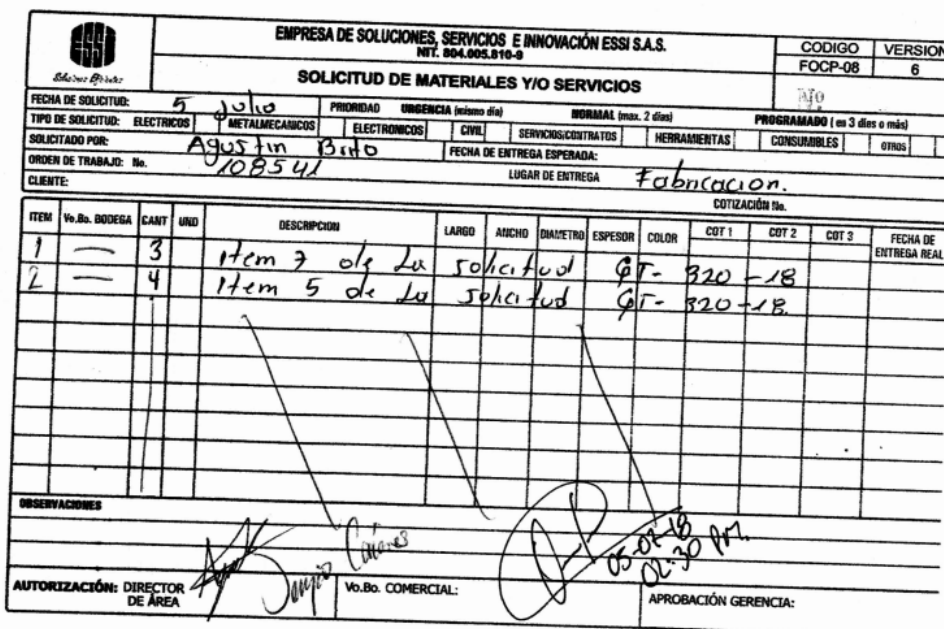 ESSI
Soluciones Eficientes
EMPRESA DE SOLUCIONES, SERVICIOS E INNOVACIÓN ESSI S.A.S.
NIT. 804.005.810-9
SOLICITUD DE MATERIALES Y/O SERVICIOS
CODIGO VERSION
FOCP-08 6
No
FECHA DE SOLICITUD: 5 Julio PRIORIDAD URGENCIA (mismo día) NORMAL (max. 2 días) PROGRAMADO (en 3 días o más)
TIPO DE SOLICITUD: ELECTRICOS METALMECANICOS ELECTRONICOS CIVIL SERVICIOS/CONTRATOS HERRAMIENTAS CONSUMIBLES OTROS
SOLICITADO POR: Agustin Brito FECHA DE ENTREGA ESPERADA:
ORDEN DE TRABAJO: No. 108541 LUGAR DE ENTREGA Fabricacion.
CLIENTE: COTIZACIÓN No.
ITEM Vo.Bo. BODEGA CANT UND DESCRIPCION LARGO ANCHO DIAMETRO ESPESOR COLOR COT 1 COT 2 COT 3 FECHA DE ENTREGA REAL
1 — 3 Item 7 de La solicitud QT- 320-18
2 — 4 Item 5 de La solicitud QT- 320-18.
OBSERVACIONES
05-07-18
02:30 PM.
AUTORIZACIÓN: DIRECTOR DE ÁREA Vo.Bo. COMERCIAL: APROBACIÓN GERENCIA: